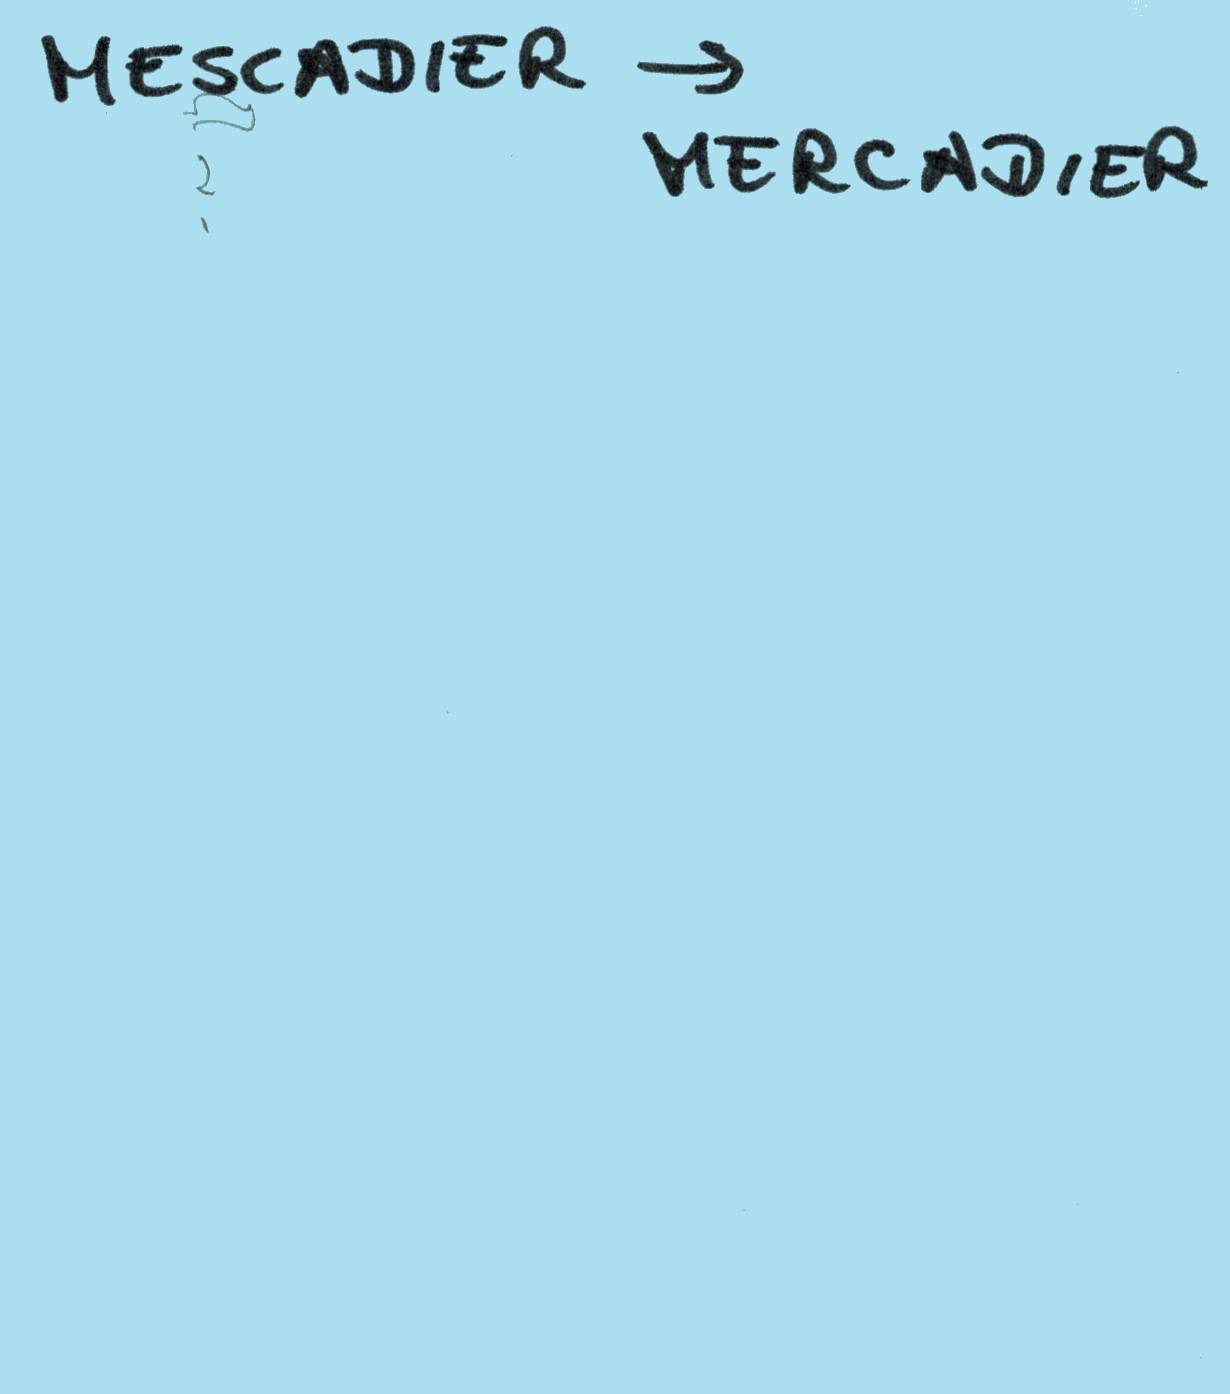 MESCADIER →
MERCADIER